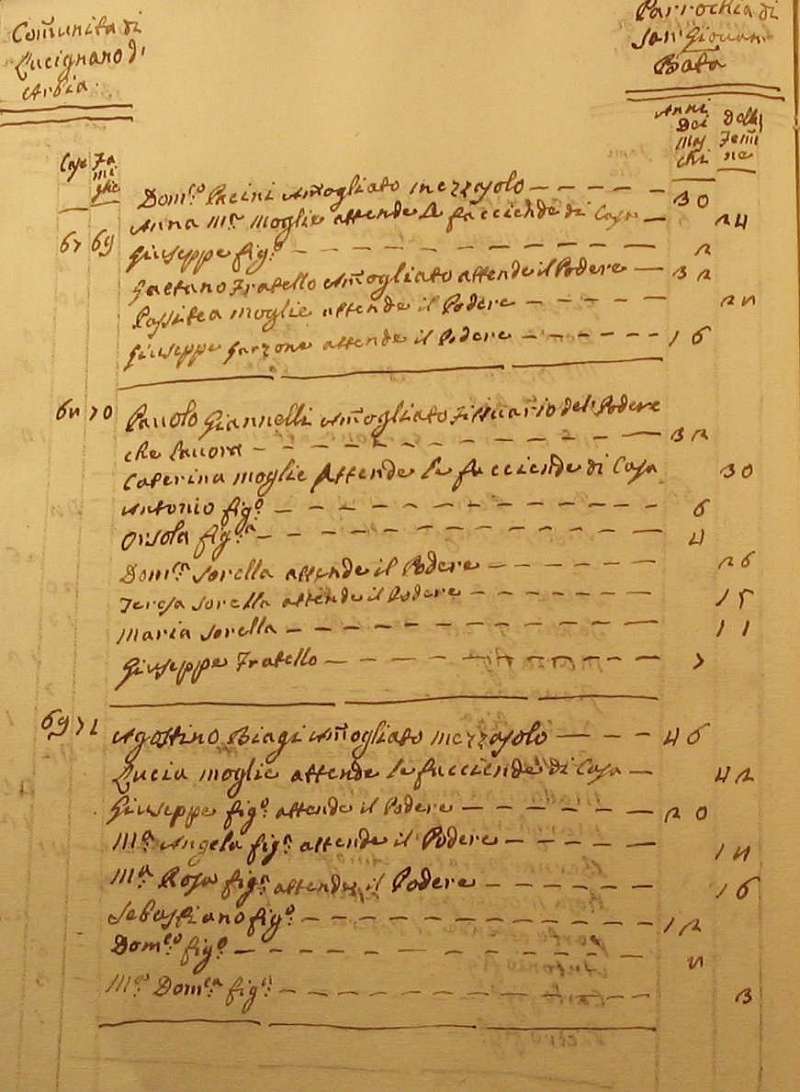 Com̃unita di
Lucignano d'
Arbia.
Parrochia di
San Giovan
Bata
Case
Fa
mi
glie
Anni
Dei
Mas
chi
Delle
Fem̃i
ne
Dom.co Pacini Am̃ogliato mezzajolo 30
Anna M.a Moglie attende Le facciende di Casa 24
67 69 Giuseppe fig.o 2
Gaetano Fratello Am̃ogliato attende il Podere 32
Passitea moglie attende il Podere
Giuseppe Garzone attende il Podere 16
70 Pauolo Giannelli Am̃ogliato Fittuario del Podere
che lavora 32
Caterina moglie Attende Le facciende di Casa 30
Antonio fig.o 6
Orsola fig.a 4
Dom.ca Sorella attende il Podere 26
Teresa Sorella attende il Podere 15
Maria Sorella 11
Giuseppe Fratello 7
69 71 Agostino Biagi Am̃ogliato mezzajolo 46
Lucia moglie attende Le facciende di Casa 42
Giuseppe fig.o attende il Podere 20
M.a Angela fig.a attende il Podere
M.a Rosa fig.a attende il Podere 16
Sebastiano fig.o 12
Dom.co fig.o
M.a Dom.ca fig.a 3